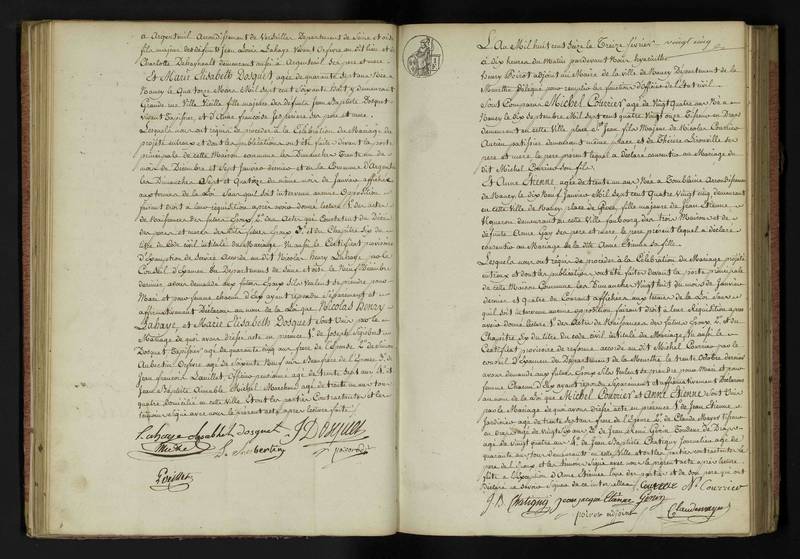 a Argenteuil Arrondissement de Versailles Département de Seine et oise
fils majeur des défunts Jean Louis Lahaye vivant Orfevre au dit lieu et de
Charlotte demeurant aussi à Argenteuil ses pere et mere.
Et Marie Elisabeth Dosquet agée de quarante sept ans Née à
Nancy le Quatorze Mars Mil sept cent soixante huit y demeurant
Grande rue Ville Vieille fille majeure des défunts Jean Baptiste Dosquet
vivant Tapissier, et d'Anne françoise ses pere et mere.
Lesquels nous ont requis de procéder à la Célébration du Mariage
projetté entreux et dont les publications ont été faites devant la porte
principale de cette Maison commune les Dimanches Trente un du
mois de Décembre et Sept Janvier dernier et en la Commune d'Argenteuil
les Dimanches Sept et Quatorze du même mois de Janvier affichées
aux termes de la loi sans qu'il soit intervenu aucune Opposition,
faisant droit à leur réquisition après avoir donné lecture 1° des actes
de Naissances des futurs Epoux 2° des Actes qui constatent du Décès
des peres et meres des dits futurs Epoux 3° et du Chapitre Six du
titre du Code civil intitulé du Mariage. Vu aussi le Certificat provisoire
d'Exemption de Service accordé au dit Nicolas Henry Lahaye par le
Conseil d'Examen du Département de Seine et oise le Neuf Décembre
dernier avons demandé aux futurs Epoux s'ils veulent se prendre pour
Mari et pour femme chacun d'Eux ayant répondu séparément et
affirmativement Déclarons au nom de la Loi que Nicolas Henry
Lahaye, et Marie Elisabeth Dosquet sont Unis par le
Mariage de quoi avons dressé acte en presence 1° de Joseph
Dosquet Tapissier agé de quarante cinq ans frere de l'Epouse 2° de
Aubertin Orfevre agé de Soixante Neuf ans Beaufrere de l'Epouse 3° de
Jean françois Officier pensionné agé de trente sept ans 4° et
Jean Baptiste Marchand agé de trente six ans tous
quatre Domiciliés en cette Ville. Et ont les parties Contractantes et les
temoins signé avec nous le present acte après lecture faite.
Lahaye Elisabeth dosquet J Dosquet
Aubertin
poirot adj
L'An Mil huit cent Seize le Treize février vingt cinq
à dix heures du Matin pardevant Nous
Henry Poirot adjoint au Maire de la Ville de Nancy Département de la
Meurthe Délégué pour remplir les fonctions d'Officier de l'Etat civil.
Sont Comparus Michel Courrier agé de Vingt Quatre ans Né à
Nancy le dix Septembre Mil sept cent quatre Vingt onze Tisseur en Draps
demeurant en cette Ville place St Jean fils Majeur de Nicolas Courrier
Ancien patissier demeurant même place et de Thérèse ses
pere et mere, le pere present lequel a déclaré consentir au Mariage du
dit Michel Courrier son fils.
Et Anne Etienne, agée de trente un ans Née à Tomblaine Arrondissement
de Nancy le dix huit Janvier Mil Sept cent Quatre Vingt cinq demeurant
en cette Ville de Nancy place de Grève, fille majeure de Jean Etienne
Vigneron demeurant en cette Ville faubourg des Trois Maisons et de
défunte Anne Gay ses pere et mere, le pere present lequel a déclaré
consentir au Mariage de la dite Anne Etienne sa fille.
Lesquels nous ont requis de procéder à la Célébration du Mariage projetté
entreux et dont les publications ont été faites devant la porte principale
de cette Maison Commune les Dimanches Vingt huit du mois de Janvier
dernier et Quatre du Courant affichées aux termes de la Loi Sans
qu'il soit intervenu aucune opposition, faisant droit à leur Réquisition après
avoir donné lecture 1° des Actes de Naissances des futurs Epoux 2° et du
Chapitre Six du titre du Code civil intitulé du Mariage, Vu aussi le
Certificat provisoire de réforme accordé au dit Michel Courrier par le
conseil d'Examen du Département de la Meurthe le trente Octobre dernier
avons demandé aux futurs Epoux s'ils veulent se prendre pour Mari et pour
femme Chacun d'Eux ayant répondu séparément et affirmativement Déclarons
au nom de la Loi que Michel Courrier et Anne Etienne sont Unis
par le Mariage de quoi avons dressé acte en presence 1° de Jean Etienne
Jardinier agé de trente sept ans frere de l'Epouse 2° de Claude Mayer Tisseur
en Draps agé de Vingt Six ans 3° de Jean Remi Génin Tondeur de Draps
agé de Vingt quatre ans 4° de Jean Baptiste Chatigny Journalier agé de
quarante ans tous demeurant en cette Ville et ont les parties contractantes le
pere de l'Epoux et les temoins Signé avec nous le present acte après lecture
faite à l'Exception d'Anne Etienne et de son pere qui ont
Déclaré ne Savoir Signer de ce interpellés. Courrier N. Courrier
J. B. Chatigny Jean Etienne Génin
poirot adjoint Claudemayer